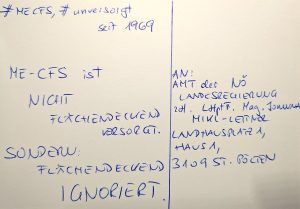 #MECFS, #unversorgt
seit 1969
ME-CFS ist
NICHT
FLÄCHENDECKEND
VERSORGT.
SONDERN:
FLÄCHENDECKEND
IGNORIERT.
AN:
AMT der NÖ
LANDESREGIERUNG
zH. LHptF. Mag. Johanna
MIKL-LEITNER
LANDHAUSPLATZ 1,
HAUS 1,
3109 ST. PÖLTEN